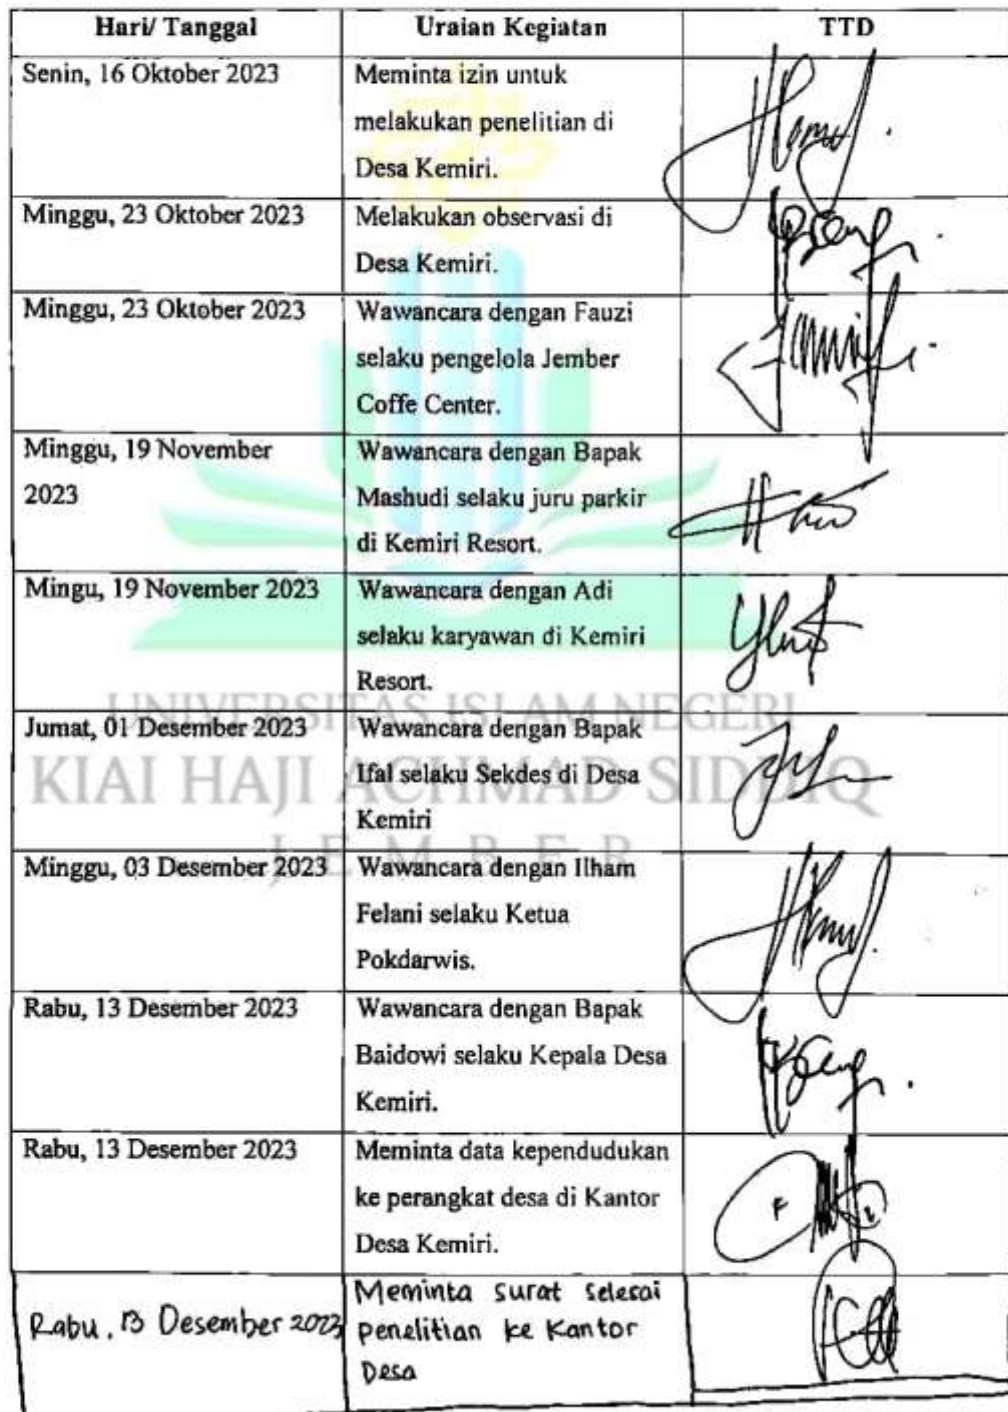 Hari/ Tanggal Uraian Kegiatan TTD
Senin, 16 Oktober 2023 Meminta izin untuk
melakukan penelitian di
Desa Kemiri.
Minggu, 23 Oktober 2023 Melakukan observasi di
Desa Kemiri.
Minggu, 23 Oktober 2023 Wawancara dengan Fauzi
selaku pengelola Jember
Coffe Center.
Minggu, 19 November Wawancara dengan Bapak
2023 Mashudi selaku juru parkir
di Kemiri Resort.
Mingu, 19 November 2023 Wawancara dengan Adi
selaku karyawan di Kemiri
Resort.
UNIVERSITAS ISLAM NEGERI
Jumat, 01 Desember 2023 Wawancara dengan Bapak
KIAI HAJI ACHMAD SIDDIQ
Ifal selaku Sekdes di Desa
Kemiri
JEMBER
Minggu, 03 Desember 2023 Wawancara dengan Ilham
Felani selaku Ketua
Pokdarwis.
Rabu, 13 Desember 2023 Wawancara dengan Bapak
Baidowi selaku Kepala Desa
Kemiri.
Rabu, 13 Desember 2023 Meminta data kependudukan
ke perangkat desa di Kantor
Desa Kemiri.
Rabu, 13 Desember 2023 Meminta surat selesai
penelitian ke Kantor
Desa